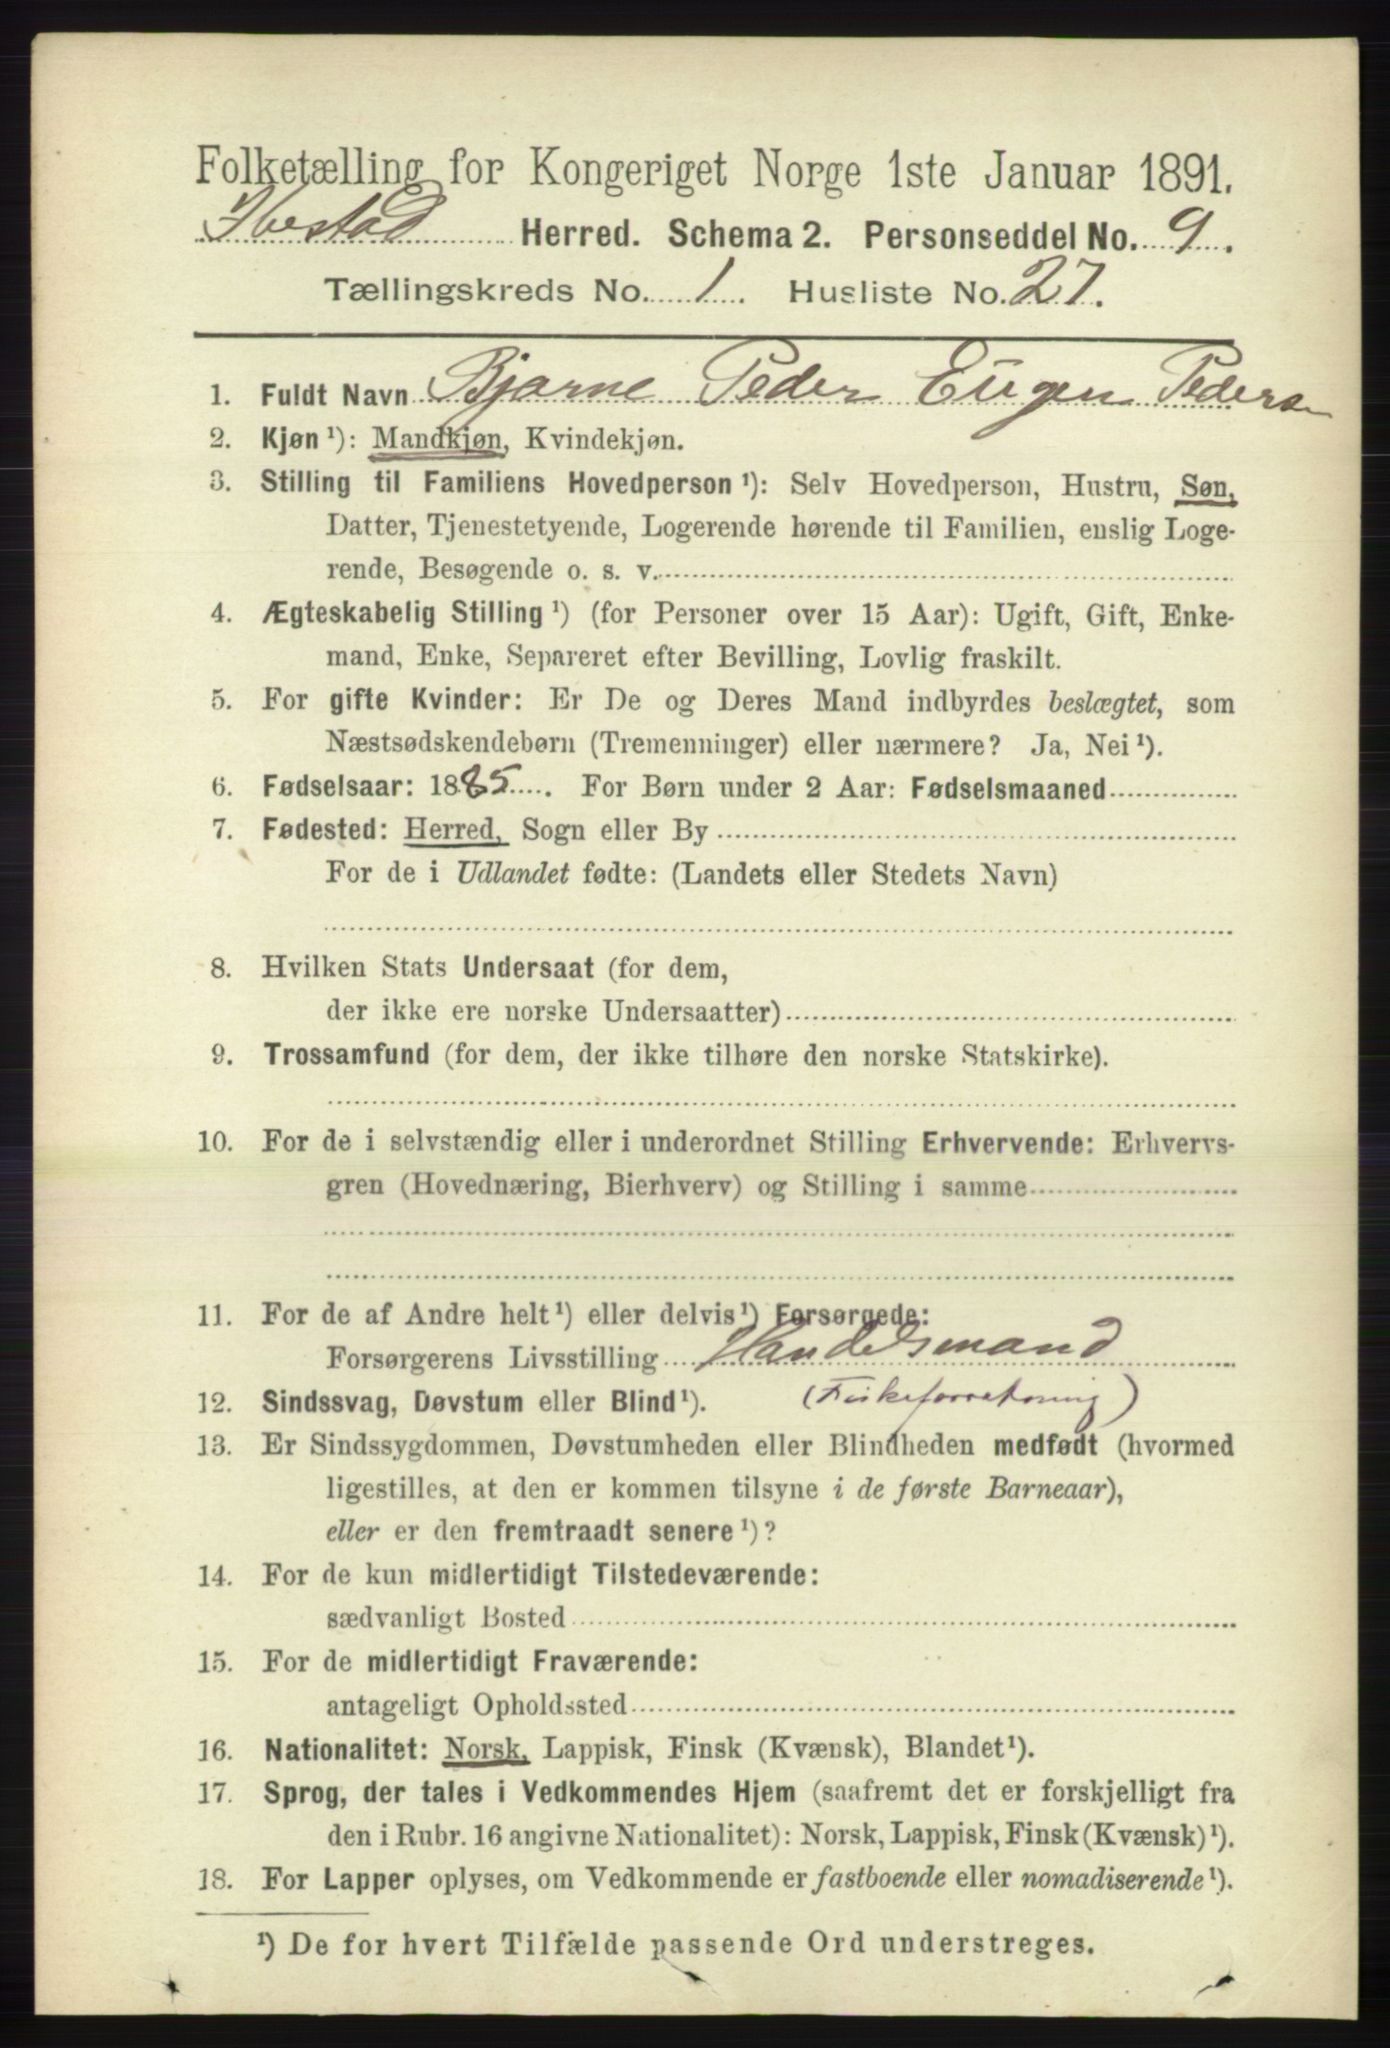 Folketælling for Kongeriget Norge 1ste Januar 1891.
Ibestad Herred. Schema 2. Personseddel No. 9.
Tællingskreds No. 1. Husliste No. 27.
1. Fuldt Navn Bjarne Peder Eugen Pedersen
2. Kjøn ¹): Mandkjøn, Kvindekjøn.
3. Stilling til Familiens Hovedperson ¹): Selv Hovedperson, Hustru, Søn,
Datter, Tjenestetyende, Logerende hørende til Familien, enslig Loge-
rende, Besøgende o. s. v.
4. Ægteskabelig Stilling ¹) (for Personer over 15 Aar): Ugift, Gift, Enke-
mand, Enke, Separeret efter Bevilling, Lovlig fraskilt.
5. For gifte Kvinder: Er De og Deres Mand indbyrdes beslægtet, som
Næstsødskendebørn (Tremenninger) eller nærmere? Ja, Nei ¹).
6. Fødselsaar: 1885. For Børn under 2 Aar: Fødselsmaaned
7. Fødested: Herred, Sogn eller By
For de i Udlandet fødte: (Landets eller Stedets Navn)
8. Hvilken Stats Undersaat (for dem,
der ikke ere norske Undersaatter)
9. Trossamfund (for dem, der ikke tilhøre den norske Statskirke).
10. For de i selvstændig eller i underordnet Stilling Erhvervende: Erhvervs-
gren (Hovednæring, Bierhverv) og Stilling i samme
11. For de af Andre helt ¹) eller delvis ¹) Forsørgede:
Forsørgerens Livsstilling Handelsmand
12. Sindssvag, Døvstum eller Blind ¹). (Fiskeforretning)
13. Er Sindssygdommen, Døvstumheden eller Blindheden medfødt (hvormed
ligestilles, at den er kommen tilsyne i de første Barneaar),
eller er den fremtraadt senere ¹)?
14. For de kun midlertidigt Tilstedeværende:
sædvanligt Bosted
15. For de midlertidigt Fraværende:
antageligt Opholdssted
16. Nationalitet: Norsk, Lappisk, Finsk (Kvænsk), Blandet ¹).
17. Sprog, der tales i Vedkommendes Hjem (saafremt det er forskjelligt fra
den i Rubr. 16 angivne Nationalitet): Norsk, Lappisk, Finsk (Kvænsk) ¹).
18. For Lapper oplyses, om Vedkommende er fastboende eller nomadiserende ¹).
¹) De for hvert Tilfælde passende Ord understreges.